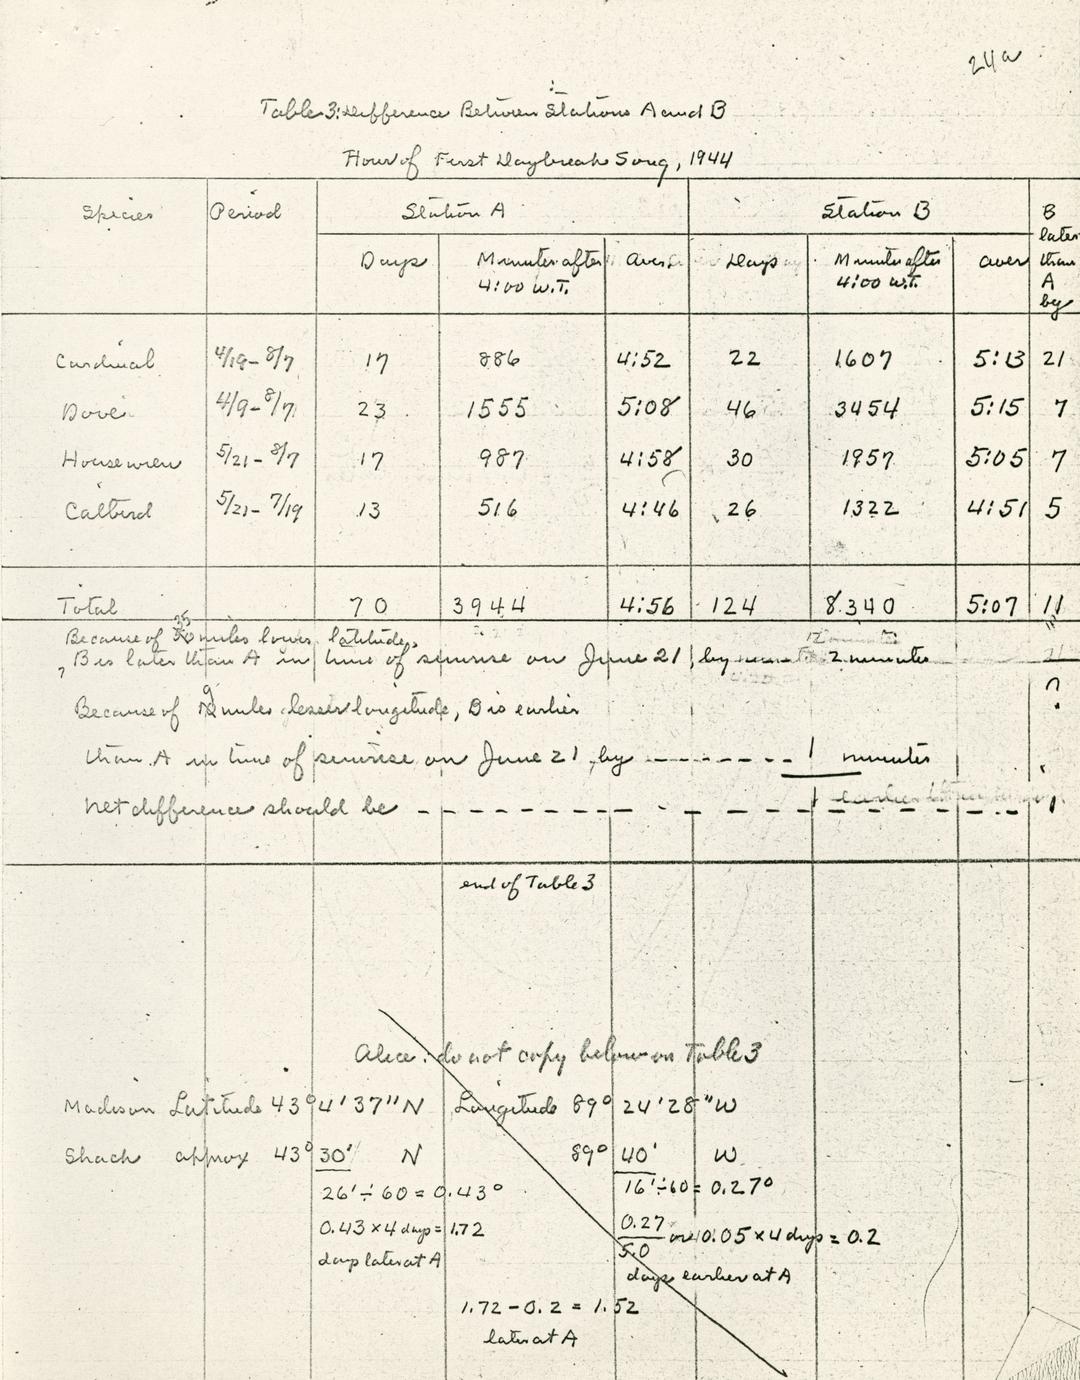 24a
Table 3: Difference Between Stations A and B
Hour of First Daybreak Song, 1944
Species Period Station A Station B B later than A by
Days Minutes after 4:00 W.T. Aver. Days Minutes after 4:00 W.T. aver
Cardinal 4/19-8/7 17 886 4:52 22 1607 5:13 21
Dove 4/9-8/7 23 1555 5:08 46 3454 5:15 7
House wren 5/21-8/7 17 987 4:58 30 1957 5:05 7
Catbird 5/21-7/19 13 516 4:46 26 1322 4:51 5
Total 70 3944 4:56 124 8340 5:07 11
Because of miles lower latitude,
B is later than A in time of sunrise on June 21 by 2 minutes
?
Because of 9 miles lesser longitude, B is earlier
than A in time of sunrise on June 21 by ------- 1 minutes
Net difference should be - - - - - - - - - - - - - - - - 1
end of Table 3
Alice: do not copy below on Table 3
Madison Latitude 43° 4' 37" N Longitude 89° 24' 28" W
Shack approx 43° 30' N 89° 40' W
26' ÷ 60 = 0.43° 16' ÷ 60 = 0.27°
0.43 x 4 days = 1.72 0.27/5.0 or 0.05 x 4 days = 0.2
days later at A days earlier at A
1.72 - 0.2 = 1.52
later at A